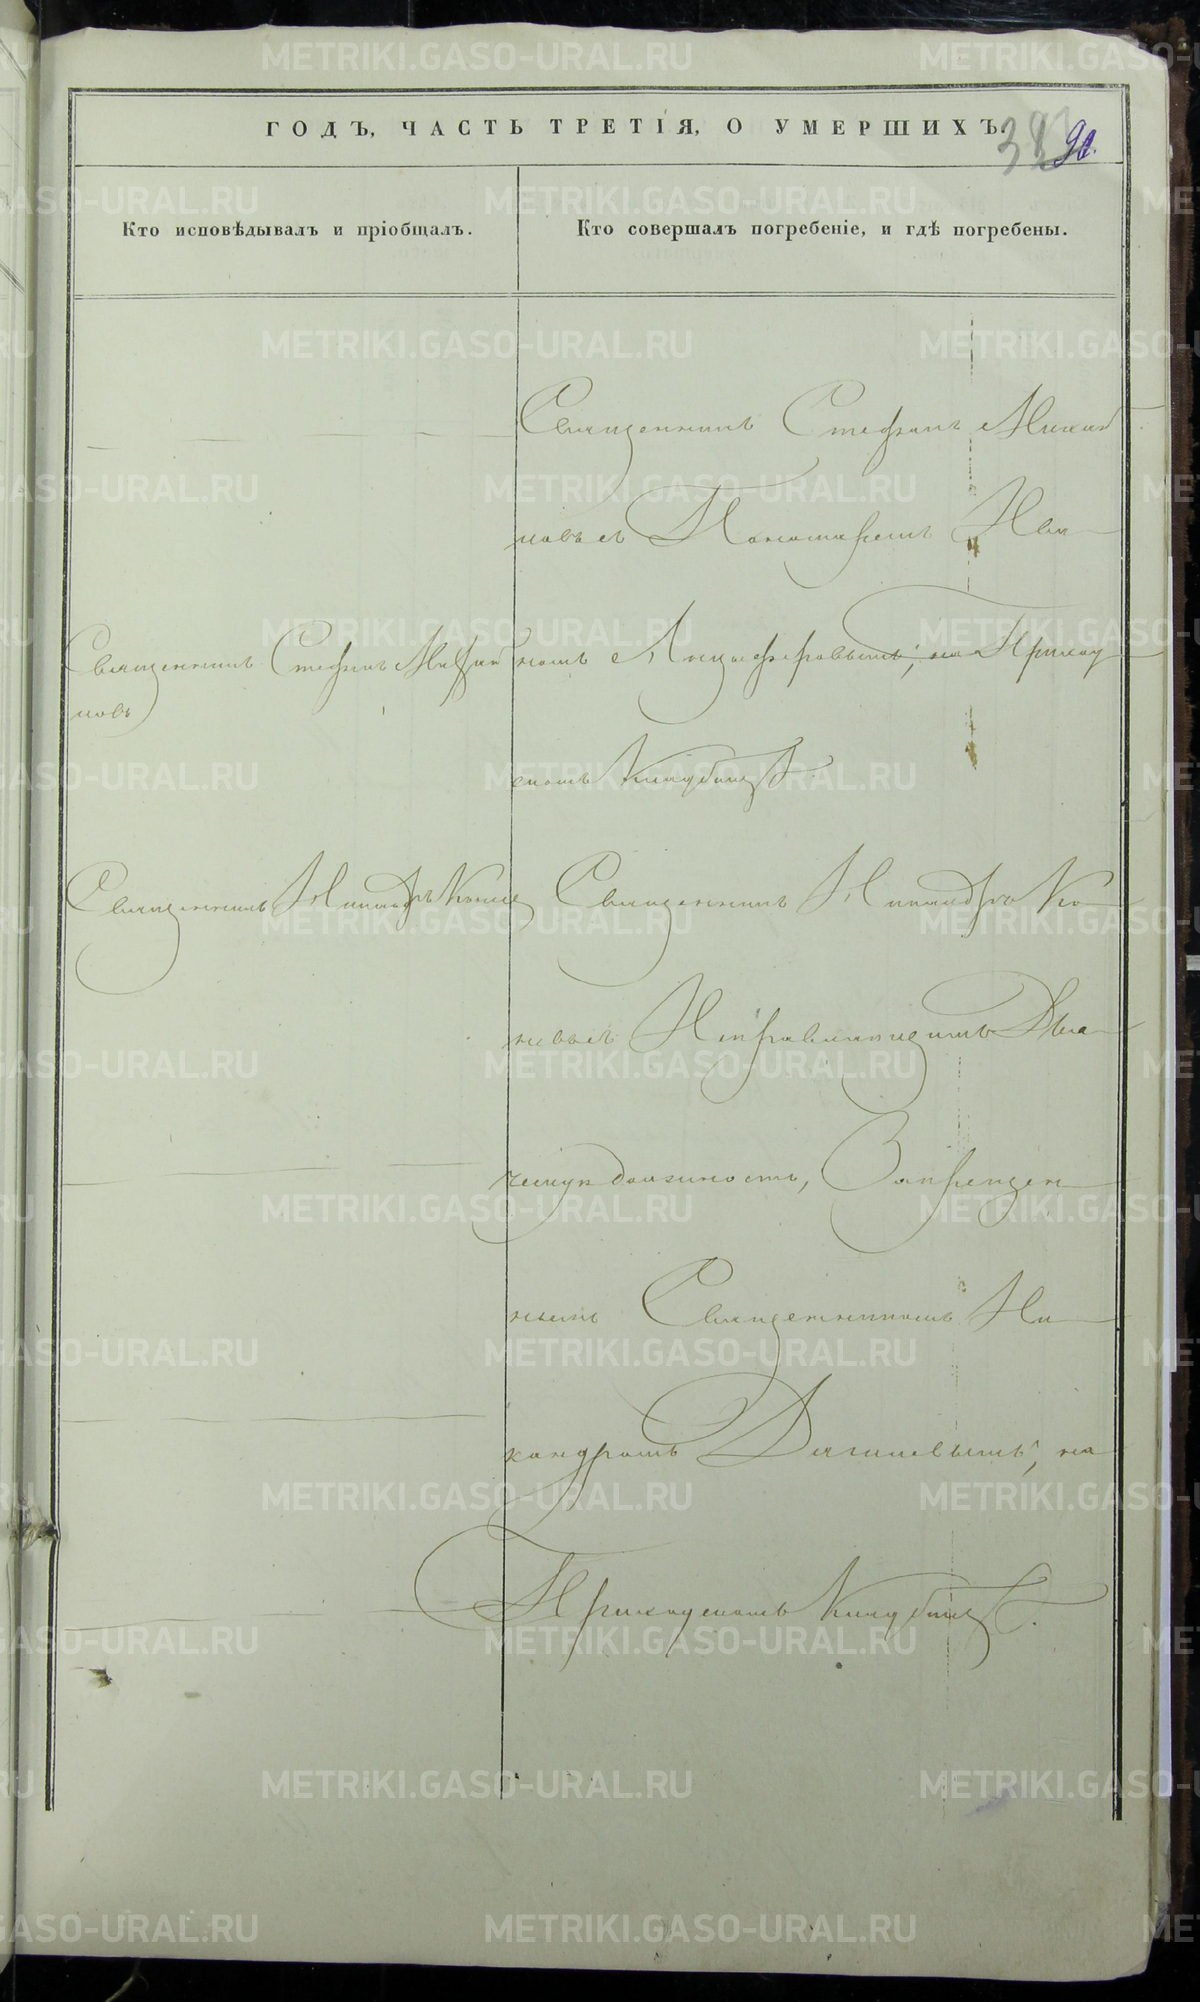 ГОДЪ, ЧАСТЬ ТРЕТІЯ, О УМЕРШИХЪ
90.
Кто исповѣдывалъ и пріобщалъ.
Кто совершалъ погребеніе, и гдѣ погребены.
Священникъ Стефанъ Михай
ловъ съ Пономаремъ Ива
номъ Анцыферовымъ, на Приход
скомъ Кладбищѣ.
Священникъ Стефанъ Михай
ловъ
Священникъ Никандръ Коне
Священникъ Никандръ Ко
невъ съ Исправляющимъ Дья
ческую должность, Запрещен
нымъ Священникомъ Ни
кандромъ Дягилевымъ, на
Приходскомъ Кладбищѣ.
METRIKI.GASO-URAL.RU